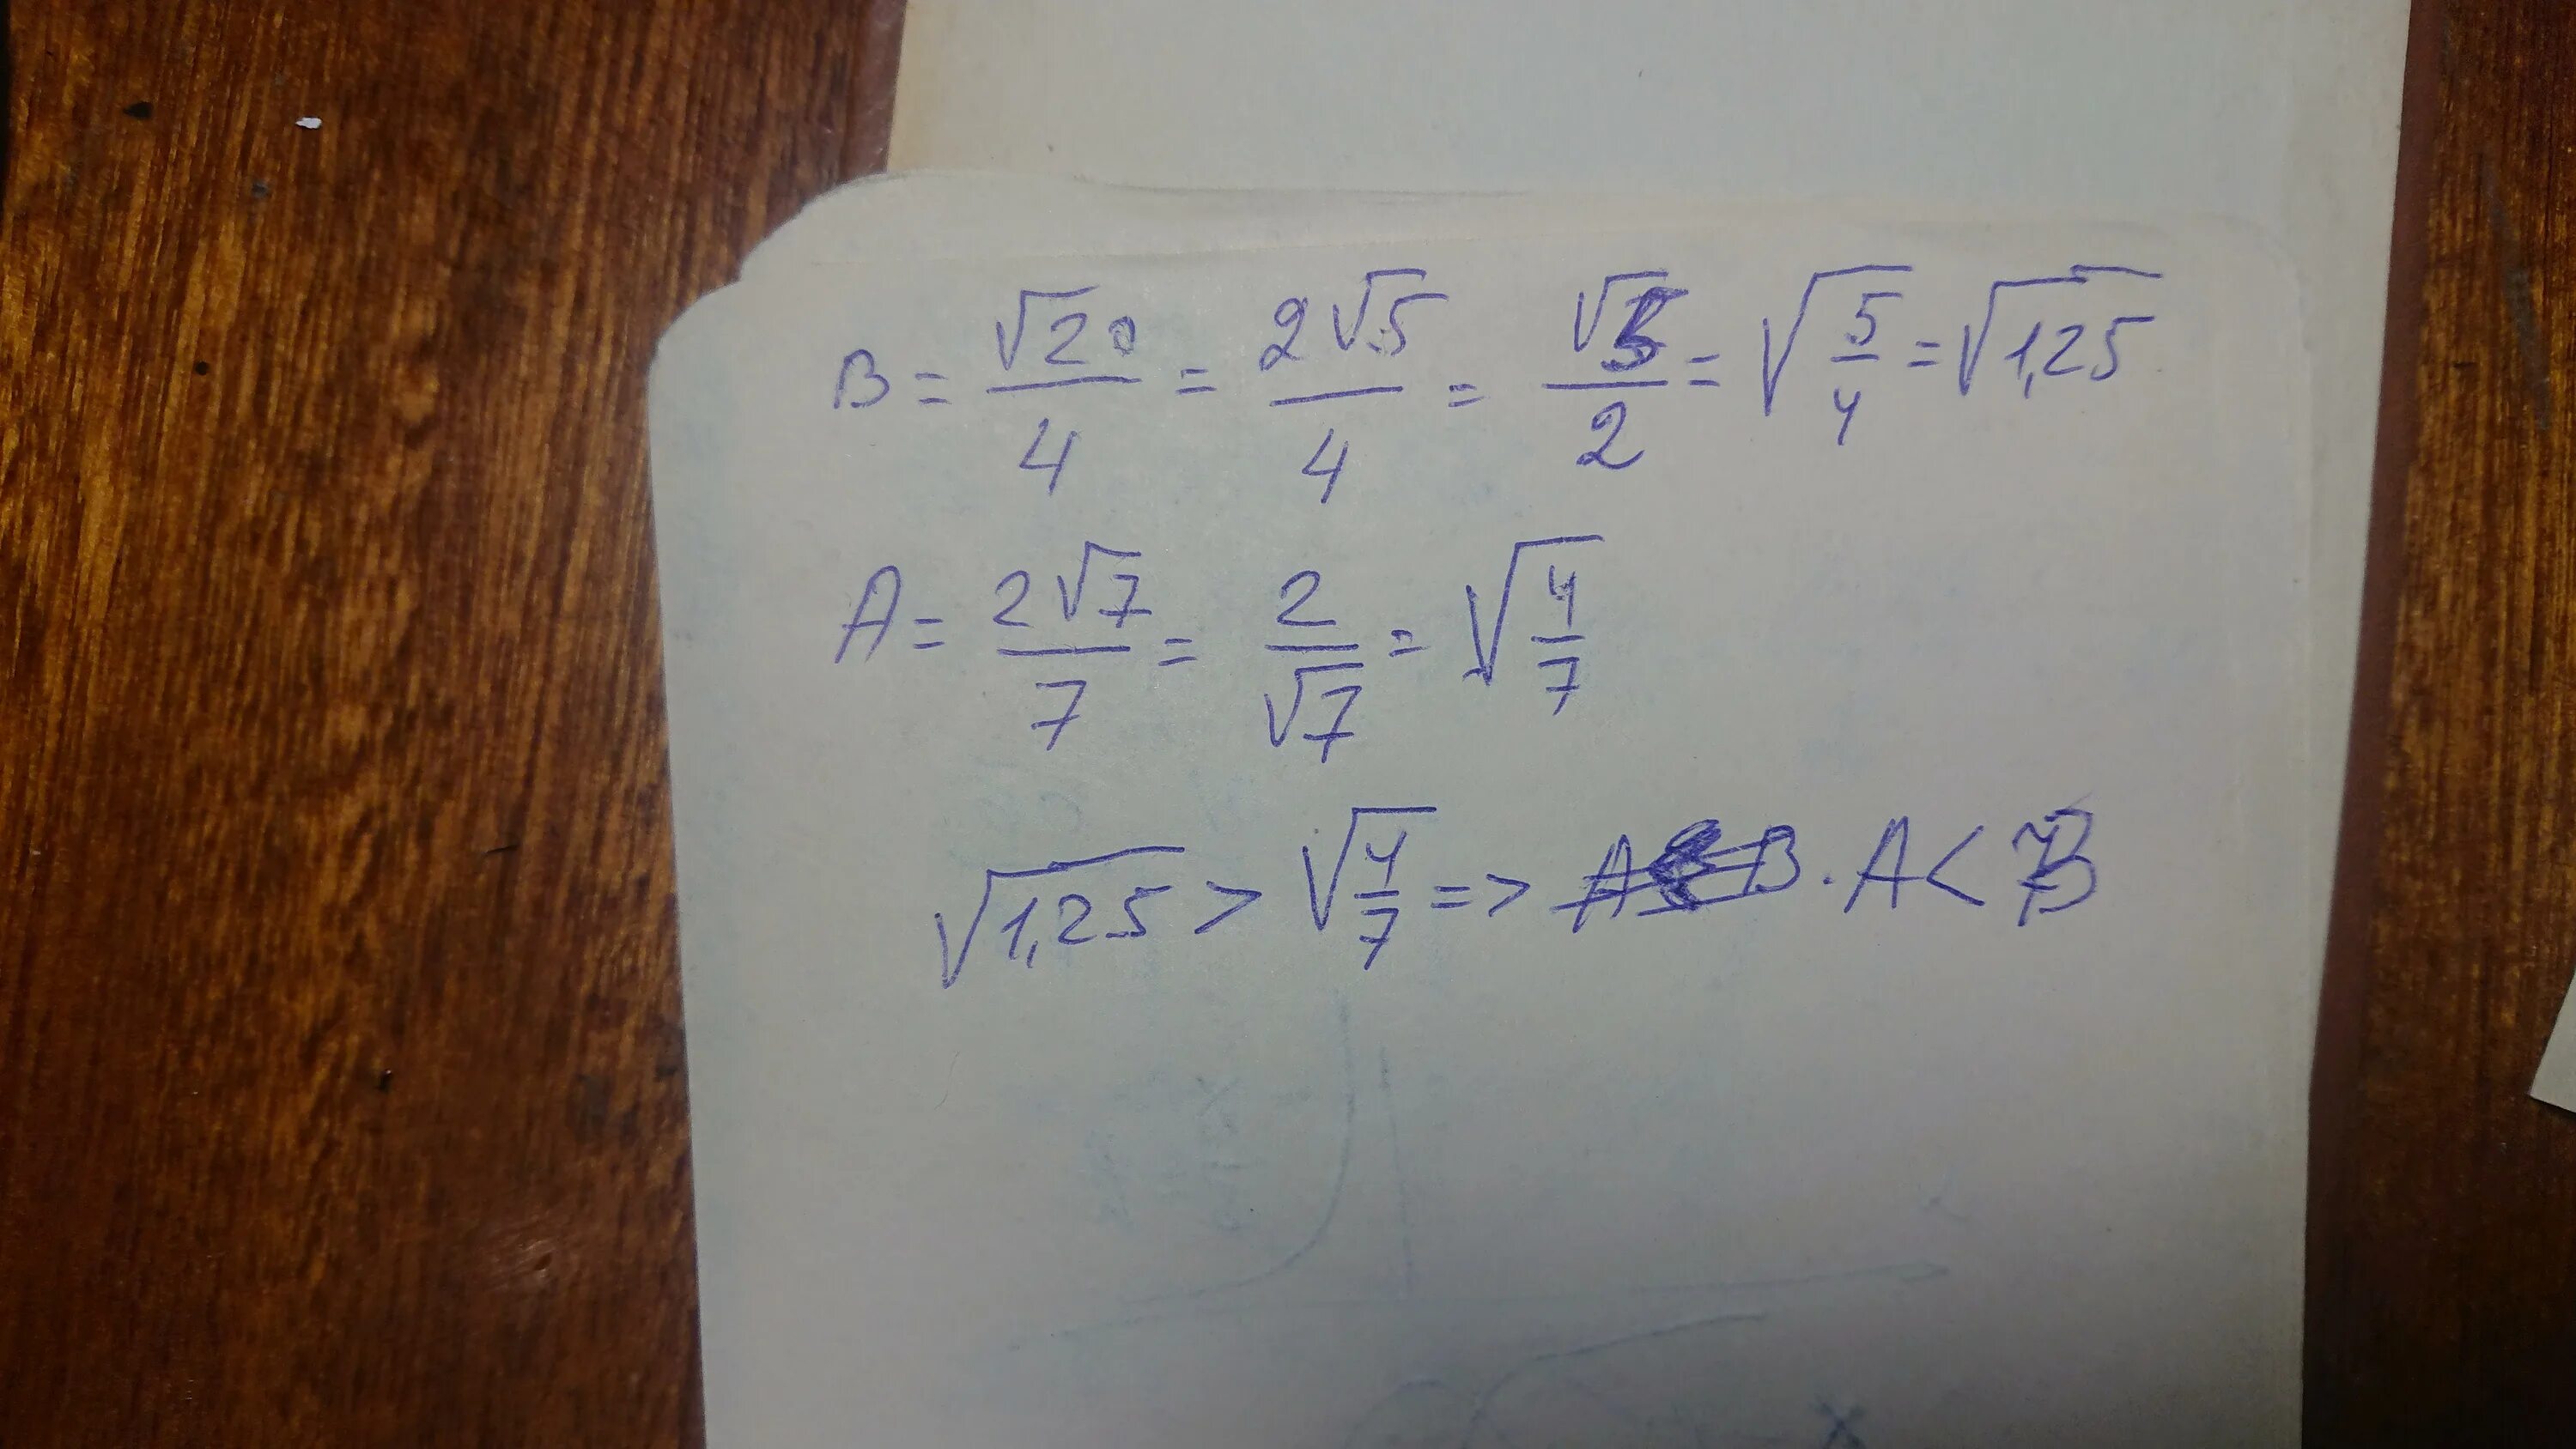 B = √20/4 = 2√5/4 = √5/2 = √(5/4) = √1,25
A = 2√7/7 = 2/√7 = √(4/7)
√1,25 > √(4/7) => A B . A < B